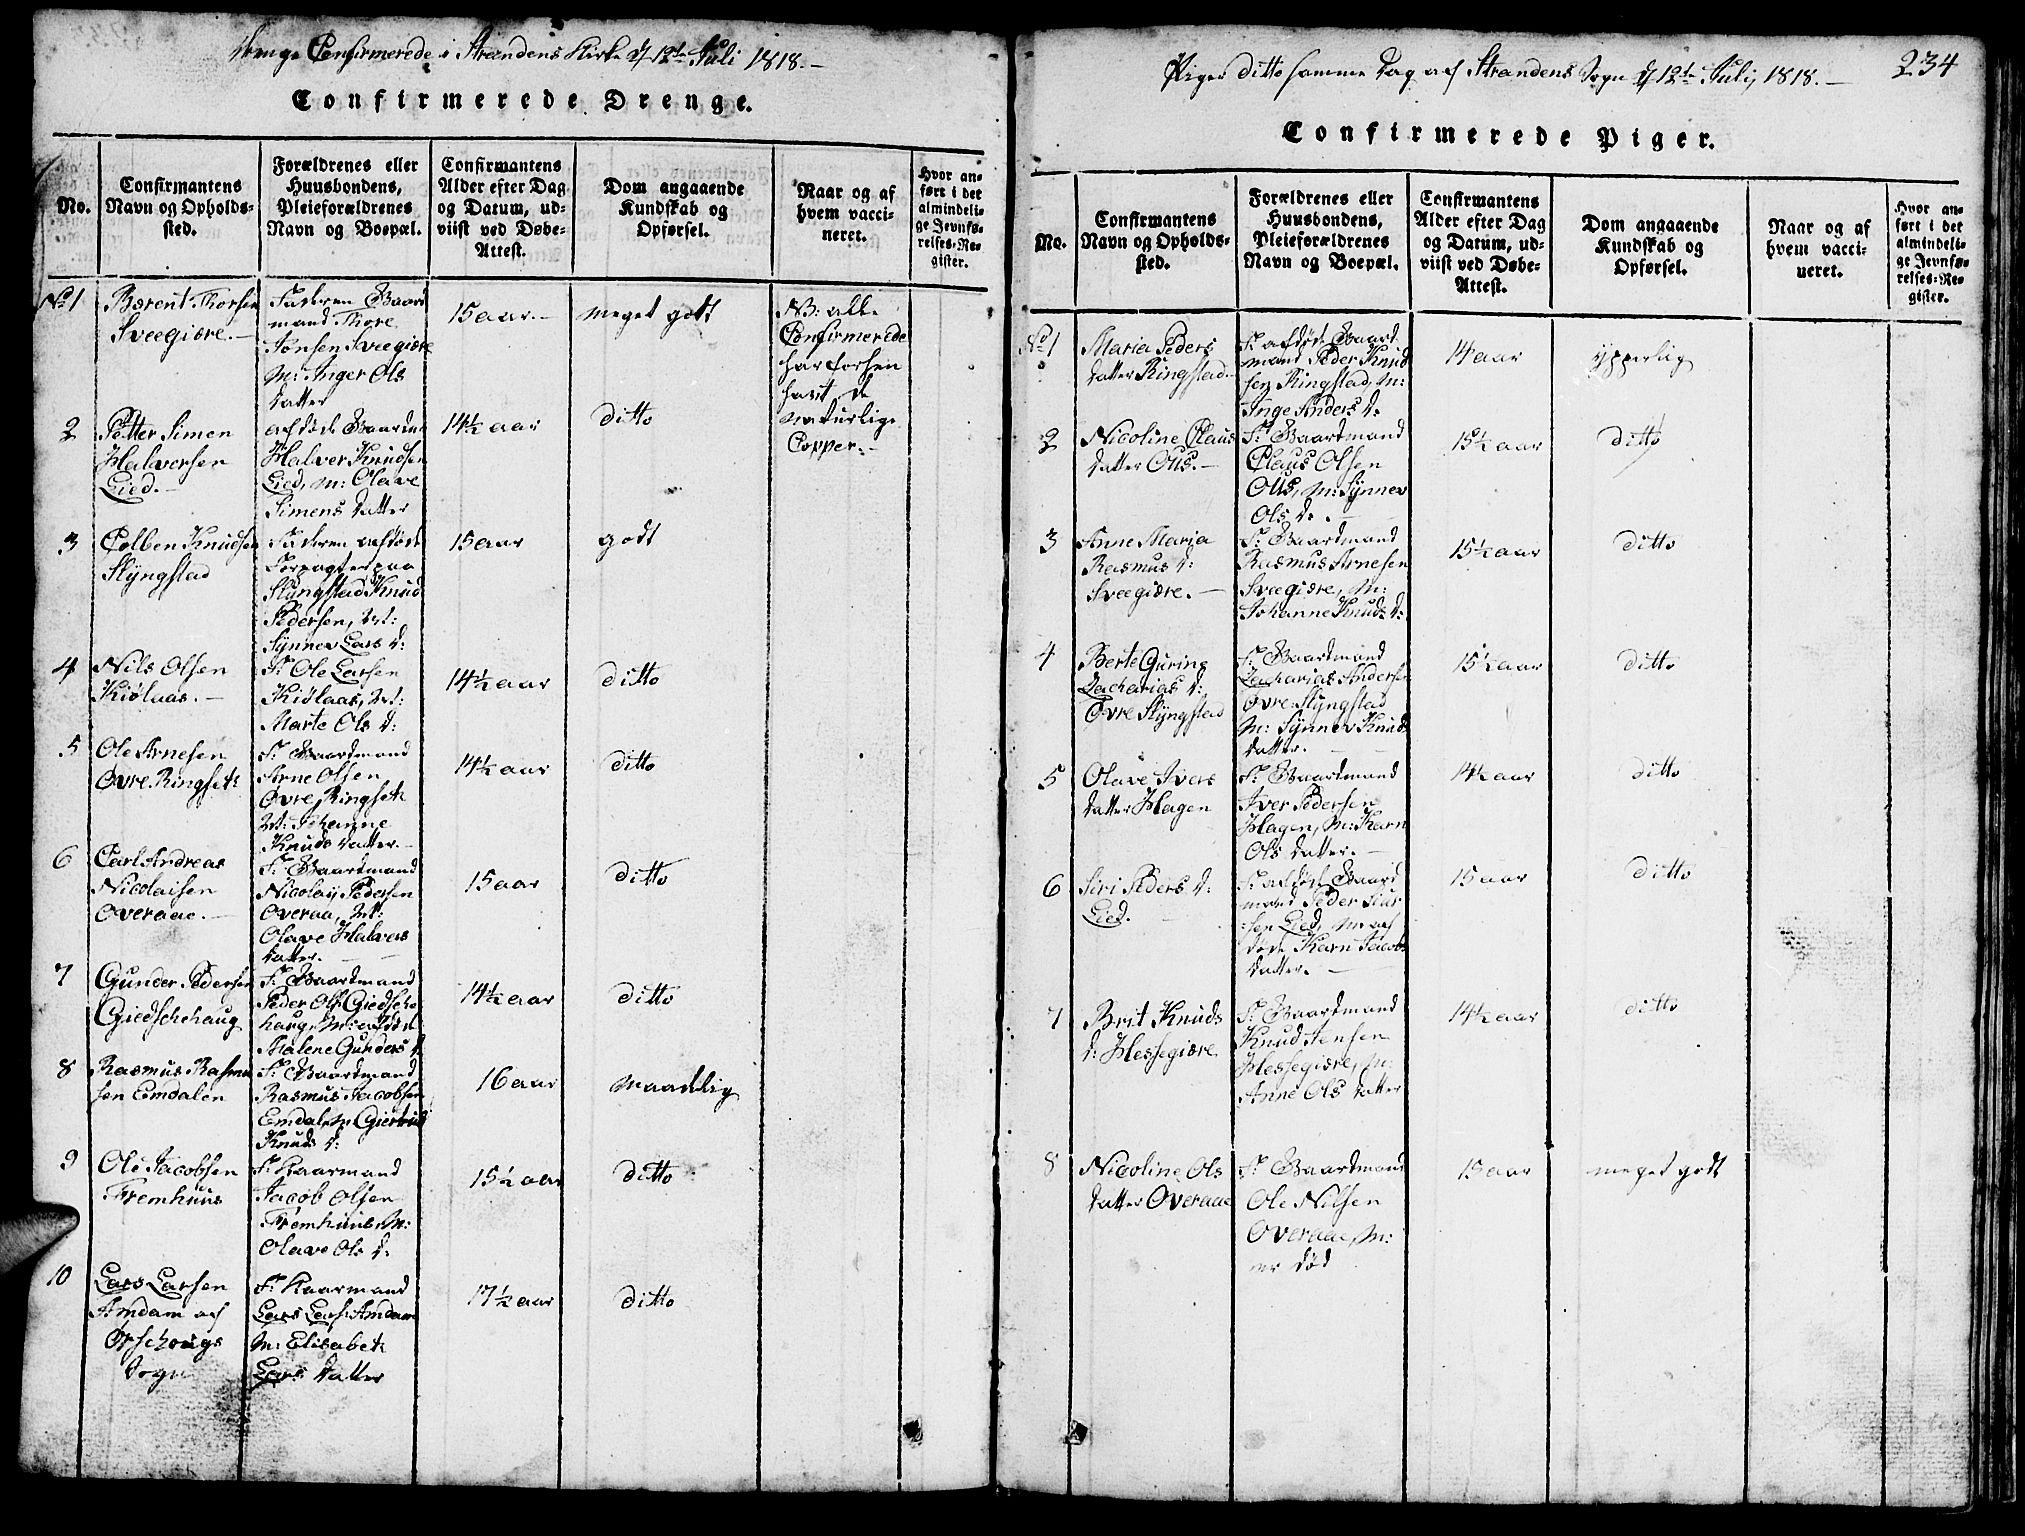 Drenge Confirmerede i Strandens Kirke d 12te Juli 1818.-
Confirmerede Drenge.
No.
Confirmantens
Navn og Opholds-
sted.
Forældrenes eller
Huusbondens,
Pleieforældrenes
Navn og Boepæl.
Confirmantens
Alder efter Dag
og Datum, ud-
viist ved Døbe-
Attest.
Dom angaaende
Kundskab og
Opførsel.
Naar og af
hvem vacci-
neret.
Hvor an-
ført i det
almindeli-
ge Jevnfø-
relses-Re-
gister.
No 1
Bærent Thorsen
Sveegiære.-
Faderen Baard
mand Thore
Jonsen Sveegiære
M: Inger Ols
datter
15 aar.-
meget godt
NB: alle
Confirmerede
har forhen
havt de
naturlige
Copper.-
2
Petter Simen
Halversen
Lied.-
afdøde Baardm
Halver Knudsen
Lied, M: Olave
Simens datter
14½ aar
ditto
3
Colben Knudsen
Slyngstad
Faderen afdøde
Forpagter paa
Slyngstad Knud
Pedersen, M:
Synnev Lars d:
15 aar
godt
4
Nils Olsen
Kiølaas.-
F: Ole Larsen
Kiølaas, M:
Marte Ols d:
14½ aar
ditto
5
Ole Arnesen
Øvre Ringseth
F: Baardmand
Arne Olsen
Øvre Ringseth
M: Johanne
Knuds datter.-
14½ aar
ditto
6
Carl Andreas
Nicolaisen
Overaae.-
F: Baardmand
Nicolaij Pedersen
Overaa, M:
Olave Halvers
datter.-
15 aar
ditto
7
Gunder Pedersen
Giedschehaug
F: Baardmand
Peder Ols Giedsche
haug, M: afdøde
Malene Gunders d
14½ aar
ditto
8
Rasmus Rasmu
sen Emdalen
F: Baardmand
Rasmus Jacobsen
Emdal, M: Giertrud
Knuds d:
16 aar
maadelig
9
Ole Jacobsen
Fremhuus
F: Kaarmand
Jacob Olsen
Fremhuus, M:
Olave Ols d:
15½ aar
ditto
10
Lars Larsen
Amdam af
Ørschougs
Sogn
F: Kaarmand
Lars Lars: Amdam
M: Elisabeth
Lars datter
17½ aar
ditto
Piger ditto samme dag af Strandens Sogn d 12te Julij 1818.-
234
Confirmerede Piger.
No.
Confirmantens
Navn og Opholds-
sted.
Forældrenes eller
Huusbondens,
Pleieforældrenes
Navn og Boepæl.
Confirmantens
Alder efter Dag
og Datum, ud-
viist ved Døbe-
Attest.
Dom angaaende
Kundskab og
Opførsel.
Naar og af
hvem vacci-
neret.
Hvor an-
ført i det
almindeli-
ge Jevnfø-
relses-Re-
gister.
No 1
Maria Peders
datter Ringstad.-
F: afdøde Baard
mand Peder Knud
sen Ringstad, M:
Inge Anders d:
14 aar
ypperlig
2
Nicoline Claus
datter Ous.-
F: Baardmand
Claus Olsen
Ous, M: Synnev
Ols d:-
15½ aar
ditto
3
Anne Maria
Rasmus d:
Sveegiære.-
F: Baardmand
Rasmus Arnesen
Sveegiære, M:
Johanne Knuds d:
15½ aar
ditto
4
Berte Guring
Zacharias d:
Øvre Slyngstad
F: Baardmand
Zacharias Andersen
Øvre Slyngstad
M: Synnev Knuds
datter.-
15½ aar
ditto
5
Olave Ivers
datter Hagen
F: Baardmand
Iver Pedersen
Hagen, M: Karn
Ols datter.-
14½ aar
ditto
6
Siri Peders d:
Lied.-
F: afdøde Baard
mand Peder
sen Lied, M af
døde Karn Jacobs
datter.-
15 aar
ditto
7
Brit Knuds
d: Hessegiære
F: Baardmand
Knud Jensen
Hessegiære, M:
Anne Ols datter
14½ aar
ditto
8
Nicoline Ols
datter Overaae
F: Baardmand
Ole Nilsen
Overaae, M:
er død
15 aar
meget godt